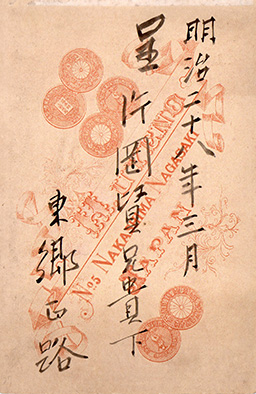 明治二十八年三月
呈
片岡賢兄貴下
東郷正路
H. UYENO
No 5 NAKASHIMA NAGASAKI
JAPAN